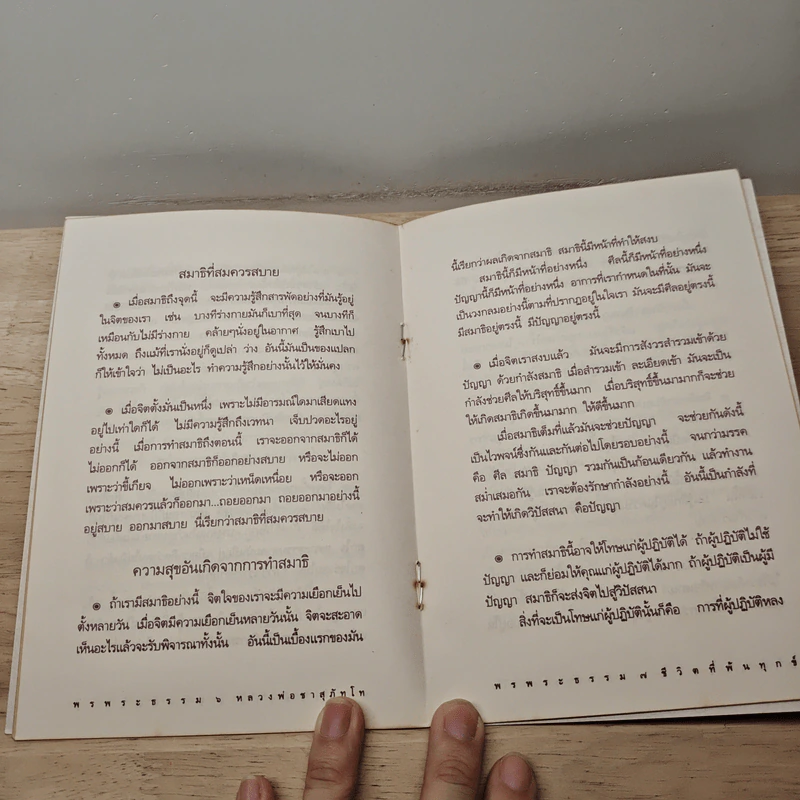 สมาธิที่สมควรสบาย
๏ เมื่อสมาธิถึงจุดนี้ จะมีความรู้สึกสารพัดอย่างที่มันรู้อยู่
ในจิตของเรา เช่น บางทีร่างกายมันก็เบาที่สุด จนบางทีก็
เหมือนกับไม่มีร่างกาย คล้ายๆนั่งอยู่ในอากาศ รู้สึกเบาไป
ทั้งหมด ถึงแม้ที่เรานั่งอยู่ก็ดูเปล่า ว่าง อันนี้มันเป็นของแปลก
ก็ให้เข้าใจว่า ไม่เป็นอะไร ทำความรู้สึกอย่างนั้นไว้ให้มั่นคง
๏ เมื่อจิตตั้งมั่นเป็นหนึ่ง เพราะไม่มีอารมณ์ใดมาเสียดแทง
อยู่ไปเท่าใดก็ได้ ไม่มีความรู้สึกถึงเวทนา เจ็บปวดอะไรอยู่
อย่างนี้ เมื่อการทำสมาธิถึงตอนนี้ เราจะออกจากสมาธิก็ได้
ไม่ออกก็ได้ ออกจากสมาธิก็ออกอย่างสบาย หรือจะไม่ออก
เพราะว่าขี้เกียจ ไม่ออกเพราะว่าเหน็ดเหนื่อย หรือจะออก
เพราะว่าสมควรแล้วก็ออกมา...ถอยออกมา ถอยออกมาอย่างนี้
อยู่สบาย ออกมาสบาย นี่เรียกว่าสมาธิที่สมควรสบาย
ความสุขอันเกิดจากการทำสมาธิ
๏ ถ้าเรามีสมาธิอย่างนี้ จิตใจของเราจะมีความเยือกเย็นไป
ตั้งหลายวัน เมื่อจิตมีความเยือกเย็นหลายวันนั้น จิตจะสะอาด
เห็นอะไรแล้วจะรับพิจารณาทั้งนั้น อันนี้เป็นเบื้องแรกของมัน
พรพระธรรม ๖ หลวงพ่อชาสุภัทโท
นี้เรียกว่าผลเกิดจากสมาธิ สมาธินี้มีหน้าที่ทำให้สงบ
สมาธินี้ก็มีหน้าที่อย่างหนึ่ง ศีลนี้ก็มีหน้าที่อย่างหนึ่ง
ปัญญานี้ก็มีหน้าที่อย่างหนึ่ง อาการที่เรากำหนดในที่นั้น มันจะ
เป็นวงกลมอย่างนี้ตามที่ปรากฏอยู่ในใจเรา มันจะมีศีลอยู่ตรงนี้
มีสมาธิอยู่ตรงนี้ มีปัญญาอยู่ตรงนี้
๏ เมื่อจิตเราสงบแล้ว มันจะมีการสังวรสำรวมเข้าด้วย
ปัญญา ด้วยกำลังสมาธิ เมื่อสำรวมเข้า ละเอียดเข้า มันจะเป็น
กำลังช่วยศีลให้บริสุทธิ์ขึ้นมาก เมื่อบริสุทธิ์ขึ้นมามากก็จะช่วย
ให้เกิดสมาธิเกิดขึ้นมามาก ให้ดีขึ้นมาก
เมื่อสมาธิเต็มที่แล้วมันจะช่วยปัญญา จะช่วยกันดังนี้
เป็นไวพจน์ซึ่งกันและกันต่อไปโดยรอบอย่างนี้ จนกว่ามรรค
คือ ศีล สมาธิ ปัญญา รวมกันเป็นก้อนเดียวกัน แล้วทำงาน
สม่ำเสมอกัน เราจะต้องรักษากำลังอย่างนี้ อันนี้เป็นกำลังที่
จะทำให้เกิดวิปัสสนา คือปัญญา
๏ การทำสมาธินี้อาจให้โทษแก่ผู้ปฏิบัติได้ ถ้าผู้ปฏิบัติไม่ใช้
ปัญญา และก็ย่อมให้คุณแก่ผู้ปฏิบัติได้มาก ถ้าผู้ปฏิบัติเป็นผู้มี
ปัญญา สมาธิก็จะส่งจิตไปสู่วิปัสสนา
สิ่งที่จะเป็นโทษแก่ผู้ปฏิบัตินั้นก็คือ การที่ผู้ปฏิบัติหลง
พรพระธรรม ๗ ชีวิตที่พ้นทุกข์